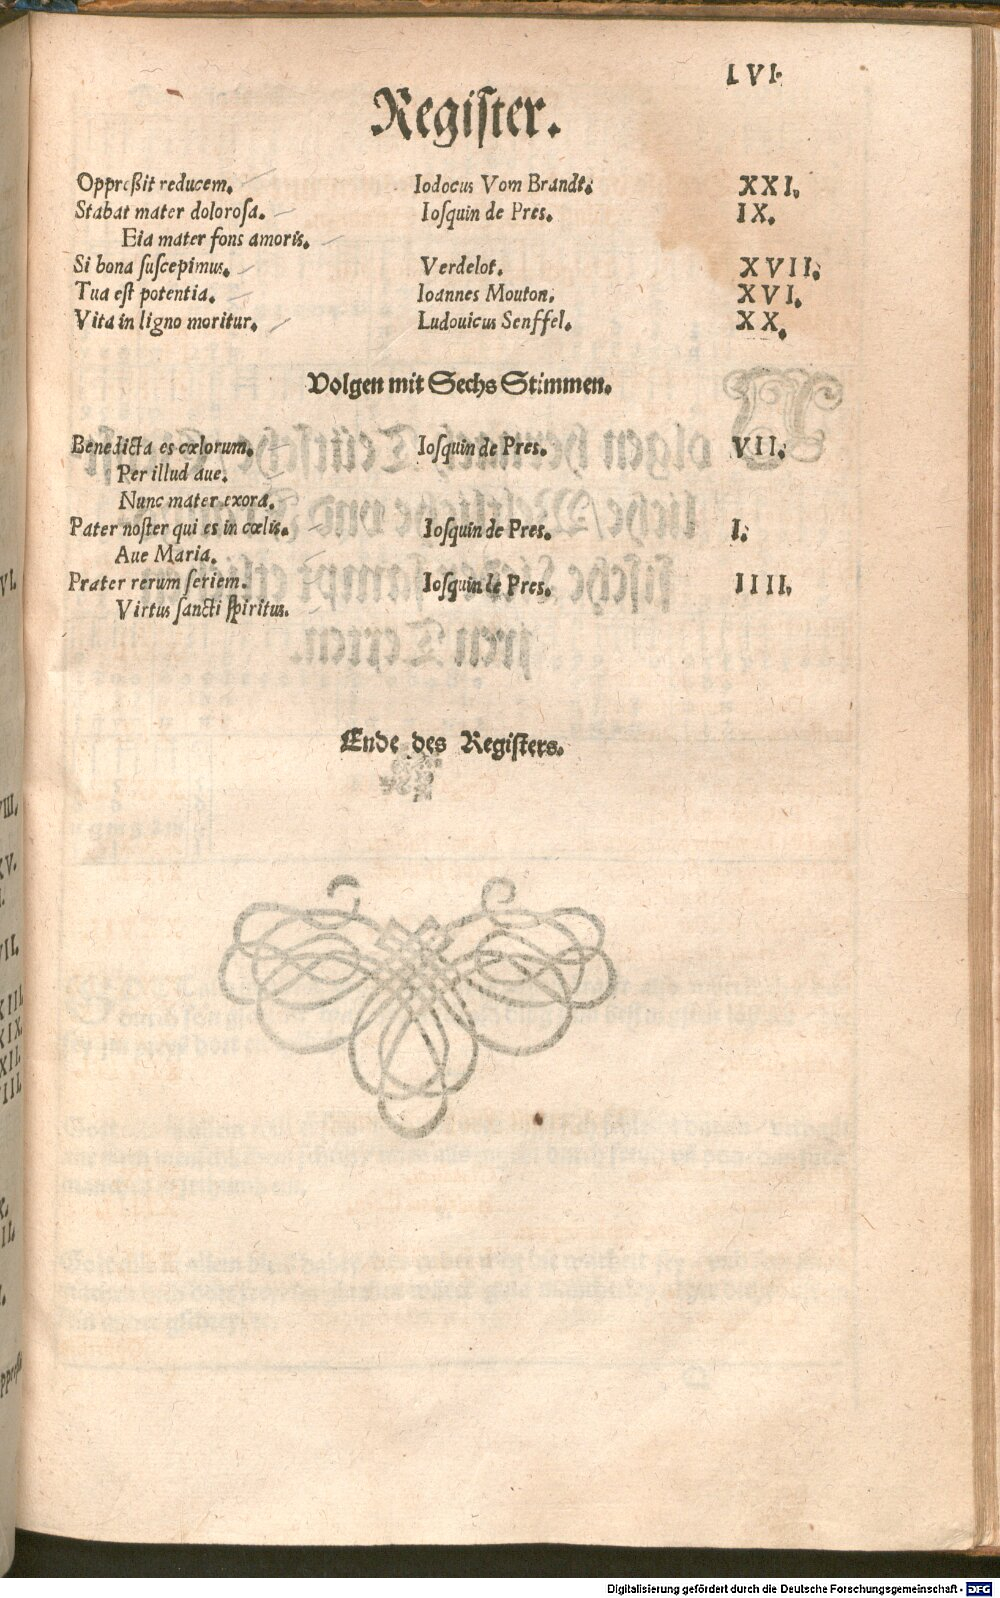 LVI.
Regiſter.
Oppreßit reducem. Iodocus Vom Brandt. XXI.
Stabat mater doloroſa. Ioſquin de Pres. IX.
Eia mater fons amoris.
Si bona ſuſcepimus. Verdelot. XVII.
Tua eſt potentia. Ioannes Mouton. XVI.
Vita in ligno moritur. Ludouicus Senffel. XX.
Volgen mit Sechs Stimmen.
Benedicta es cœlorum. Ioſquin de Pres. VII.
Per illud aue.
Nunc mater exora.
Pater noſter qui es in cœlis. Ioſquin de Pres. I.
Aue Maria.
Prater rerum ſeriem. Ioſquin de Pres. IIII.
Virtus ſancti ſpiritus.
Ende des Regiſters.
Digitalisierung gefördert durch die Deutsche Forschungsgemeinschaft - DFG